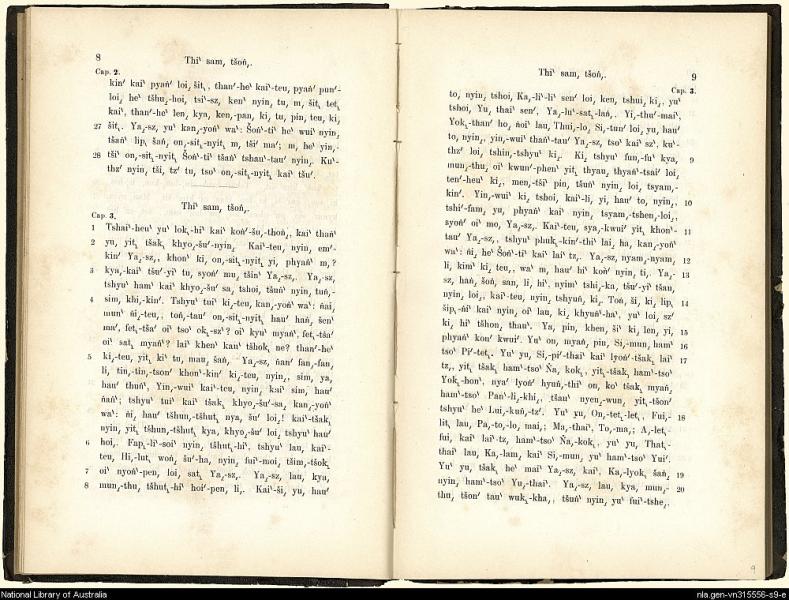 8
Thiˋ sam, tšoń,.
Cap. 2.
kin′ kaiˋ pyań′ loi, šit˛, than′-heˋ kai˛-teu, pyań′ pun′-
loi, heˋ tšhu,-hoi, tsi˛-sz, kenˋ nyin, tu, m, šit˛ tet˛
kaiˋ, than′-heˋ len, kya, ken,-pan, ki, tu, pin, teu, ki,
27 šit˛. Ya,-sz, yuˋ kan,-yońˋ waˋ: Šońˋ-tiˋ heˋ wui′ nyin,
tšańˋ lip˛ šań, on,-sit˛-nyit˛ m, tši′ ma′; m, heˋ yin,-
28 tšiˋ on,-sit˛-nyit˛ Šońˋ-tiˋ tšańˋ tshau-tau′ nyin,. Kuˋ-
thz′ nyin, tši, tz′ tu, tso′ on,-sit˛-nyit˛ kaiˋ tšu′.
Thiˋ sam, tšoń,.
Cap. 3.
1 Tshaiˋ-heuˋ yuˋ lok˛-hiˋ kaiˋ koń′-šu,-thoń,, kaiˋ thańˋ
2 yu, yit˛ tšak˛ khyo,-šu′-nyin,. Kaiˋ-teu, nyin, em′-
kin′ Ya,-sz,, khonˋ ki, on,-sit˛-nyit˛ yi, phyańˋ m,?
3 kya,-kaiˋ tšu′-yiˋ tu, syoń′ mu, tšinˋ Ya,-sz,. Ya,-sz,
tshyuˋ ham′ kaiˋ khyo,-šu′ sa, tshoi, tšuńˋ nyin, tuń,-
4 sim, khi,-kin′. Tshyuˋ tuiˋ ki,-teu, kan,-yońˋ waˋ: ńai,
munˋ ńi,-teu,: toń,-tau′ on,-sit˛-nyit˛ hau′ hań, šenˋ
ma′, fet˛-tša′ oiˋ tsoˋ ok˛-sz′? oiˋ kyuˋ myań′, fet˛-tša′
oiˋ sat˛ myań′? laiˋ khenˋ kauˋ tšhok˛ ne? than′-heˋ
5 ki,-teu, yit˛ kiˋ tu, mau, šań,. Ya,-sz, ńan′ fan,-fan,
li, tin,-tin,-tson′ khonˋ-kin′ ki,-teu, nyin,, sim, ya,
hau′ thuńˋ. Yin,-wuiˋ kai˛-teu, nyin, kaiˋ sim, hau′
ńańˋ; tshyuˋ tuiˋ kaiˋ tšak˛ khyo,-šu′-sa, kan,-yońˋ
waˋ: ńi, hau′ tšhun,-tšhut˛ nya, šu′ loi,! kaiˋ-tšak˛
nyin, yit˛ tšhun,-tšhut˛ kya, khyo,-šu′ loi, tshyuˋ hau′
6 hoi,. Fap˛-liˋ-soiˋ nyin, tšhut˛-hiˋ. tshyuˋ lau, kaiˋ-
teu, Hi,-lut˛ woń, šu′-ha, nyin, fui′-moi, tšim,-tšok˛
7 oiˋ nyoń′-pen, loi, sat˛ Ya,-sz,. Ya,-sz, lau, kya,
8 mun,-thu, tšhut˛-hiˋ hoi′-pen, li,. Kaiˋ-ši, yu, hau′
Thiˋ sam, tšoń,.
9
Cap. 3.
to, nyin, tshoi, Ka,-liˋ-liˋ sen′ loi, ken, tshui, ki,, yuˋ
tshoi, Yu, thai′ sen′, Ya,-luˋ-sat˛-lań,. Yi,-thu′-maiˋ,
Yok˛-than′ ho, ńoiˋ lau, Thui,-lo, Si,-tun′ loi, yu, hau′
to, nyin,, yin,-wuiˋ thań′-tauˋ Ya,-sz, tso′ kaiˋ sz′, kuˋ-
thz′ loi, tshin,-tshyuˋ ki,. Ki, tshyuˋ fun,-fuˋ kya, 9
mun,-thu, oiˋ kwun′-phenˋ yit˛ thyau, thyań′-tsai′ loi,
ten′-heuˋ ki,, men,-tšiˋ pin, tšuńˋ nyin, loi, tsyam,-
kin′. Yin,-wuiˋ ki, tshoi, kaiˋ-li, yi, hau′ to, nyin,, 10
tshi′-fam, yu, phyańˋ kaiˋ nyin, tsyam,-tshen,-loi,,
syoń′ oiˋ mo, Ya,-sz,. Kaiˋ-teu, sya,-kwui′ yit˛ khonˋ- 11
tau′ Ya,-sz,, tshyuˋ phuk˛-kin′-thiˋ lai, ha, kan,-yońˋ
waˋ: ńi, heˋ Šońˋ-tiˋ kaiˋ laiˋ tz,. Ya,-sz, nyam,-nyam, 12
li, kimˋ ki, teu,, waˋ m, hau′ hiˋ końˋ nyin, ti,. Ya,- 13
sz, hań, šoń, san, li, hiˋ, nyimˋ tshi,-ka, tšu′-yiˋ tšau,
nyin, loi,, kaiˋ-teu, nyin, tshyuń, ki,. Toń, ši, ki, lip˛ 14
šip˛-ńiˋ kaiˋ nyin, oiˋ lau, ki, khyuńˋ-haˋ. yuˋ loi, sz′
ki, hiˋ tšhon, thauˋ. Ya, pin, khen, šiˋ ki, len, yi, 15
phyańˋ kon′ kwui′. Yuˋ on, myań, pin, Si,-mun, ham 16
tso′ Piˋ-tet˛. Yuˋ yu, Si,-pi′-thaiˋ kaiˋ lyoń′-tšak˛ laiˋ 17
tz,, yit˛ tšak˛ hamˋ-tso′ Ńa, kok˛, yit˛-tšak˛ hamˋ-tso′
Yok˛-honˋ, nya′ lyoń′ hyuń,-thiˋ on, koˋ tšak˛ myań,
hamˋ-tso′ Pań′-li,-khi,, tšau nyen,-wun, yit˛-tšon′
tshyuˋ heˋ Lui,-kuń,-tz′. Yuˋ yu, On,-tet˛-let˛, Fui,- 18
lit˛ lau, Pa,-to,-lo, mai,; Ma,-thaiˋ, To,-ma,; A,-let˛
fui, kaiˋ laiˋ tz, hamˋ-tso′ Ńa,-kok˛, yuˋ yu, That˛-
thaiˋ lau, Ka,-lam, kaiˋ Si,-mun, yuˋ hamˋ-tso′ Yui′.
Yuˋ yu, tšak˛ heˋ maiˋ Ya,-sz, kaiˋ, Ka,-lyok˛ šań, 19
nyin, hamˋ-tso′ Yu,-thaiˋ. Ya,-sz, lau, kya, mun,- 20
thu, tšon′ tauˋ wuk˛-kha,, tšuńˋ nyin, yuˋ fuiˋ-tshe,.
9
National Library of Australia
nla.gen-vn315556-s9-e